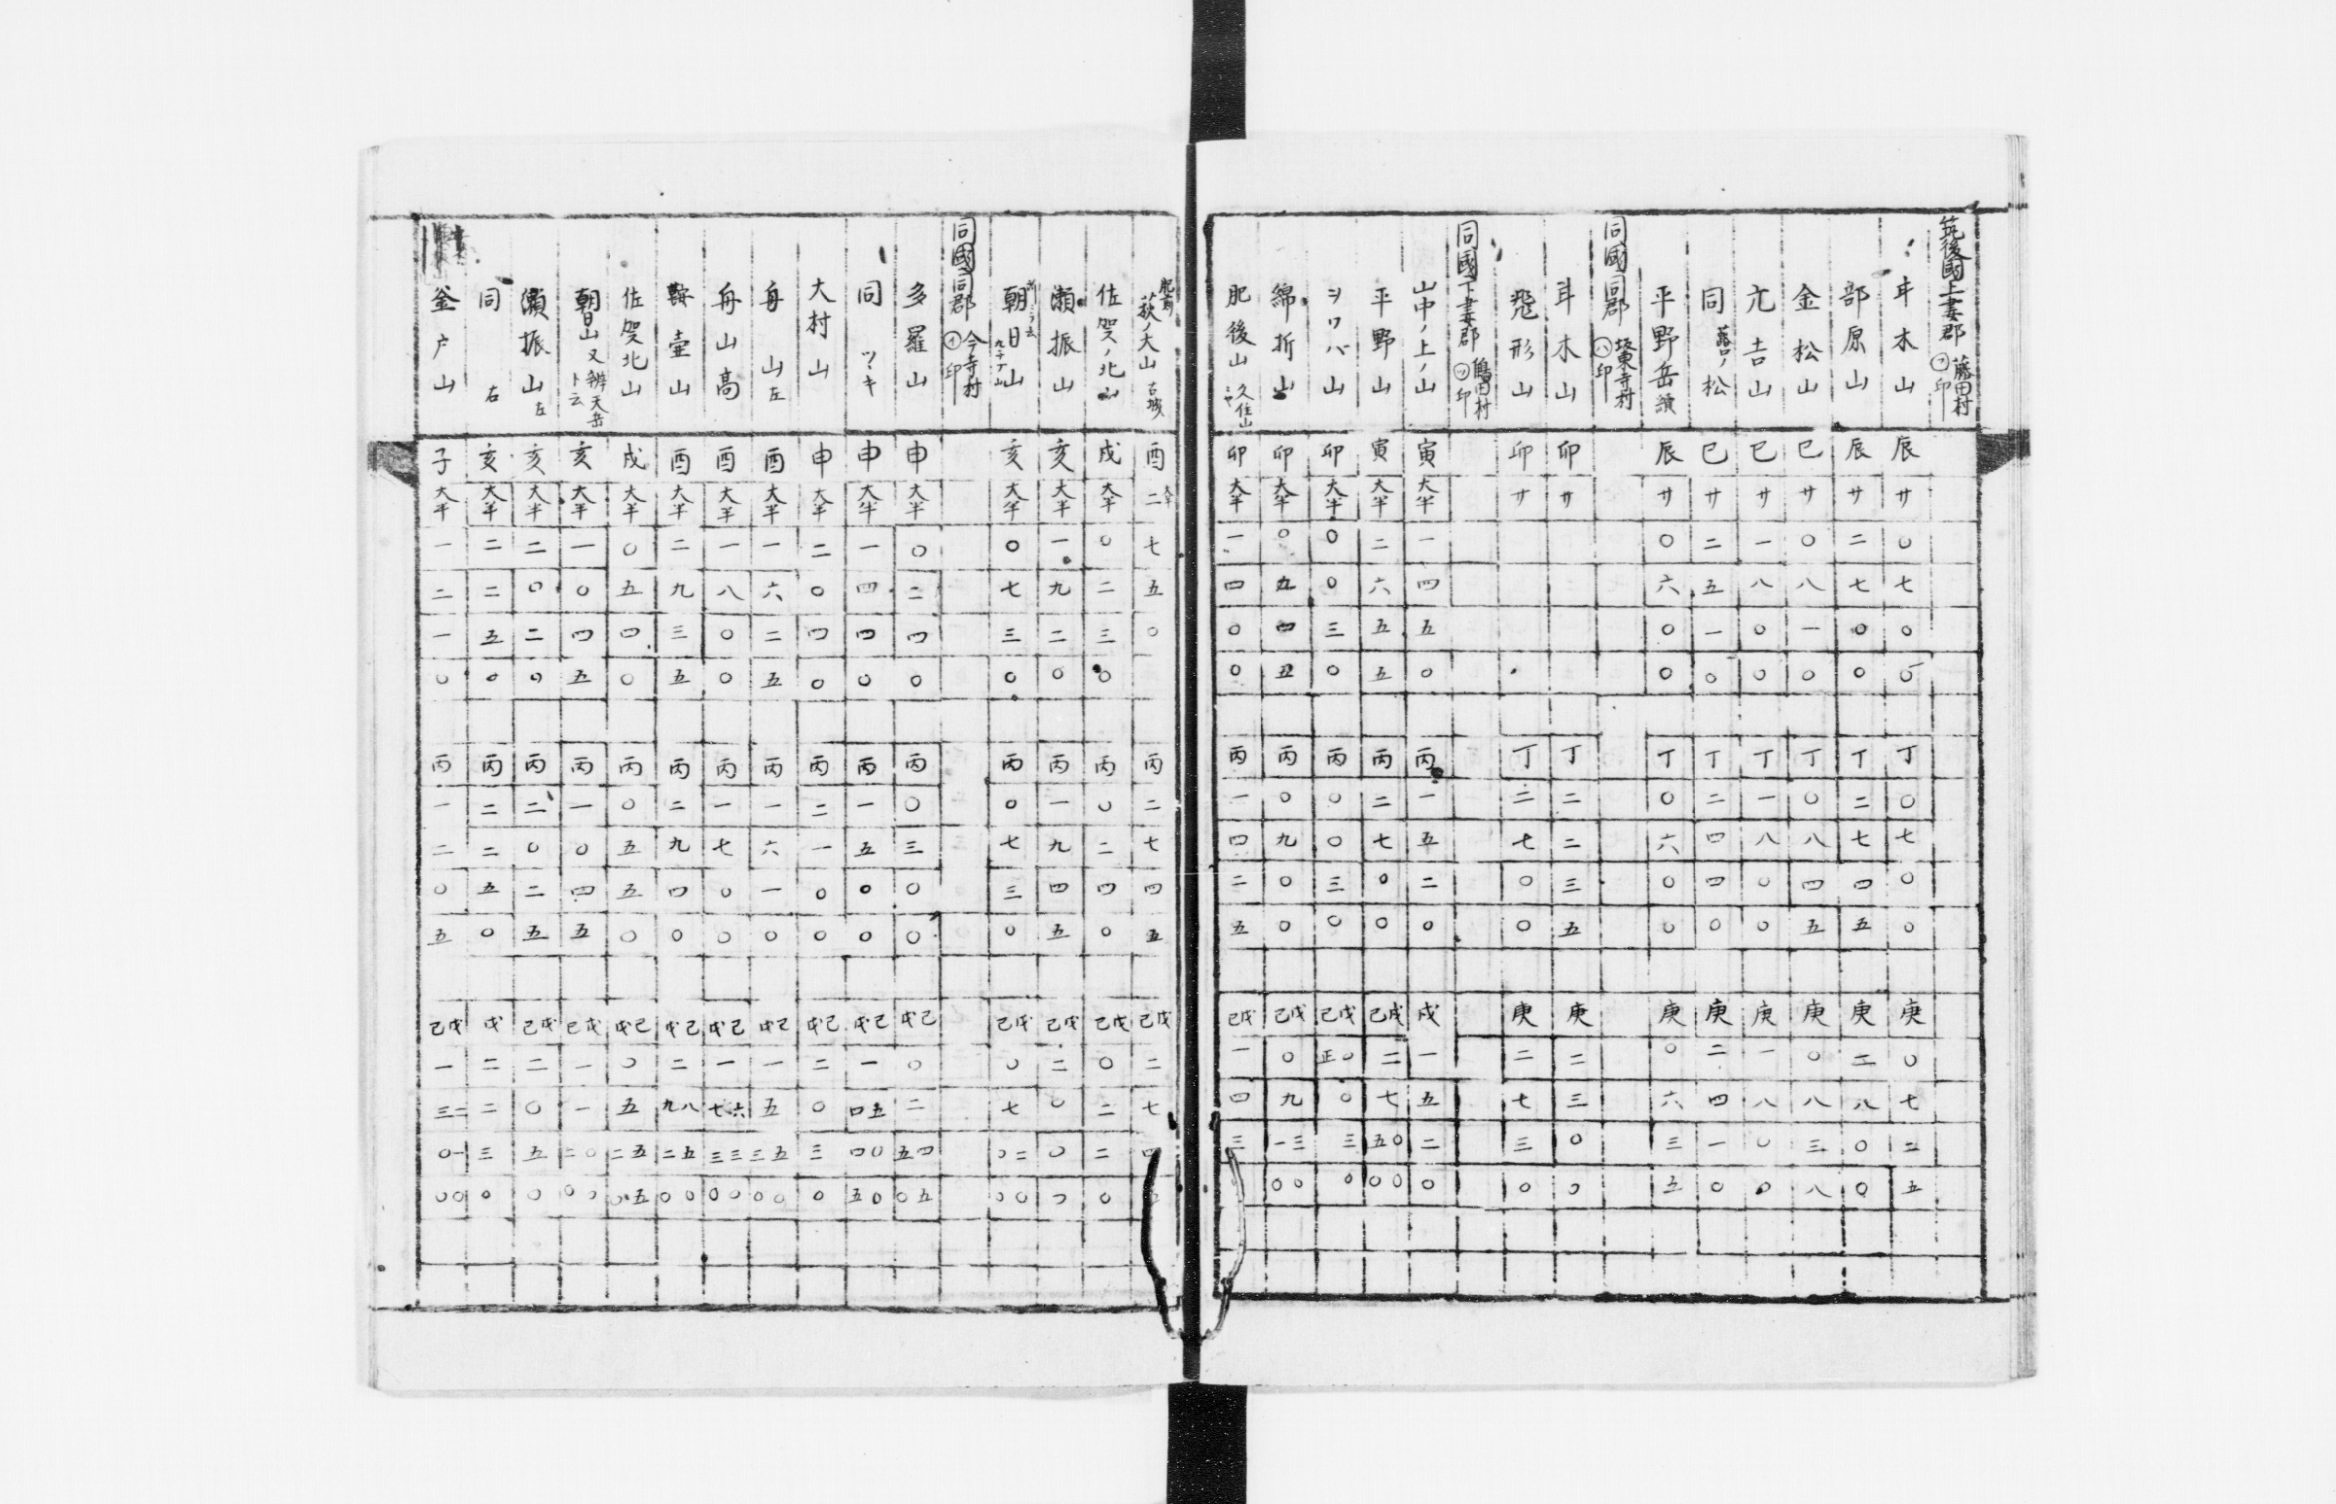 筑後國上妻郡 藤田村 ㋾印
耳木山 辰 廿 〇 七 〇 〇 丁 〇 七 〇 〇 庚 〇 七 二 五
部原山 辰 廿 二 七 〇 〇 丁 二 七 四 五 庚 二 八 〇 〇
金松山 巳 廿 〇 八 一 〇 丁 〇 八 四 五 庚 〇 八 三 八
亢吉山 巳 廿 一 八 〇 〇 丁 一 八 〇 〇 庚 一 八 〇 〇
同 ノ松 巳 廿 二 五 一 〇 丁 二 四 四 〇 庚 二 四 一 〇
平野岳 辰 廿 〇 六 〇 〇 丁 〇 六 〇 〇 庚 〇 六 三 五
同國同郡 坂東寺村 ㋩印
耳木山 卯 廿 丁 二 二 三 五 庚 二 三 〇 〇
飛形山 卯 廿 丁 二 七 〇 〇 庚 二 七 三 〇
同國下妻郡 鶴田村 ㋡印
山中ノ上ノ山 寅 大半 一 四 五 〇 丙 一 五 二 〇 戊 一 五 二 〇
平野山 寅 大半 二 六 五 五 丙 二 七 〇 〇 己戊 二 七 五〇 〇〇
ヲワバ山 卯 大半 〇 〇 三 〇 丙 〇 〇 三 〇 己戊 正〇 〇 三 〇
綿折山 卯 大半 〇 五 四 五 丙 〇 九 〇 〇 己戊 〇 九 一三 〇〇
肥後山 久住山 卯 大半 一 四 〇 〇 丙 一 四 二 五 己戊 一 四 三
肥前 荻ノ大山 古城 酉 大半 二 七 五 〇 丙 二 七 四 五 己戊 二 七 四
佐賀ノ北山 戌 大半 〇 二 三 〇 丙 〇 二 四 〇 己戊 〇 二 二 〇
瀬振山 亥 大半 一 九 二 〇 丙 一 九 四 五 己戊 二 〇 〇 〇
朝日山 九千ア山 亥 大半 〇 七 三 〇 丙 〇 七 三 〇 己戊 〇 七 〇二 〇〇
同國同郡 今寺村 ㋑印
多羅山 申 大半 〇 二 四 〇 丙 〇 三 〇 〇 戊己 〇 二 五四 〇五
同 ツヽキ 申 大半 一 四 四 〇 丙 一 五 〇 〇 戊己 一 四五 四〇 五〇
大村山 申 大半 二 〇 四 〇 丙 二 一 〇 〇 戊己 二 〇 三 〇
舟山左 酉 大半 一 六 二 五 丙 一 六 一 〇 戊己 一 五 三五 〇〇
舟山高 酉 大半 一 八 〇 〇 丙 一 七 〇 〇 戊己 一 七六 三三 〇〇
鞍壷山 酉 大半 二 九 三 五 丙 二 九 四 〇 戊己 二 九八 二五 〇〇
佐賀北山 戌 大半 〇 五 四 〇 丙 〇 五 五 〇 戊己 〇 五 二五 〇五
朝日山 又辨天岳ト云 亥 大半 一 〇 四 五 丙 一 〇 四 五 己戊 一 一 二〇 〇〇
瀬振山左 亥 大半 二 〇 二 〇 丙 二 〇 二 五 己戊 二 〇 五 〇
同 右 亥 大半 二 二 五 〇 丙 二 二 五 〇 戊 二 二 三 〇
釜戸山 子 大半 一 二 一 〇 丙 一 二 〇 五 己戊 一 三二 〇一 〇〇